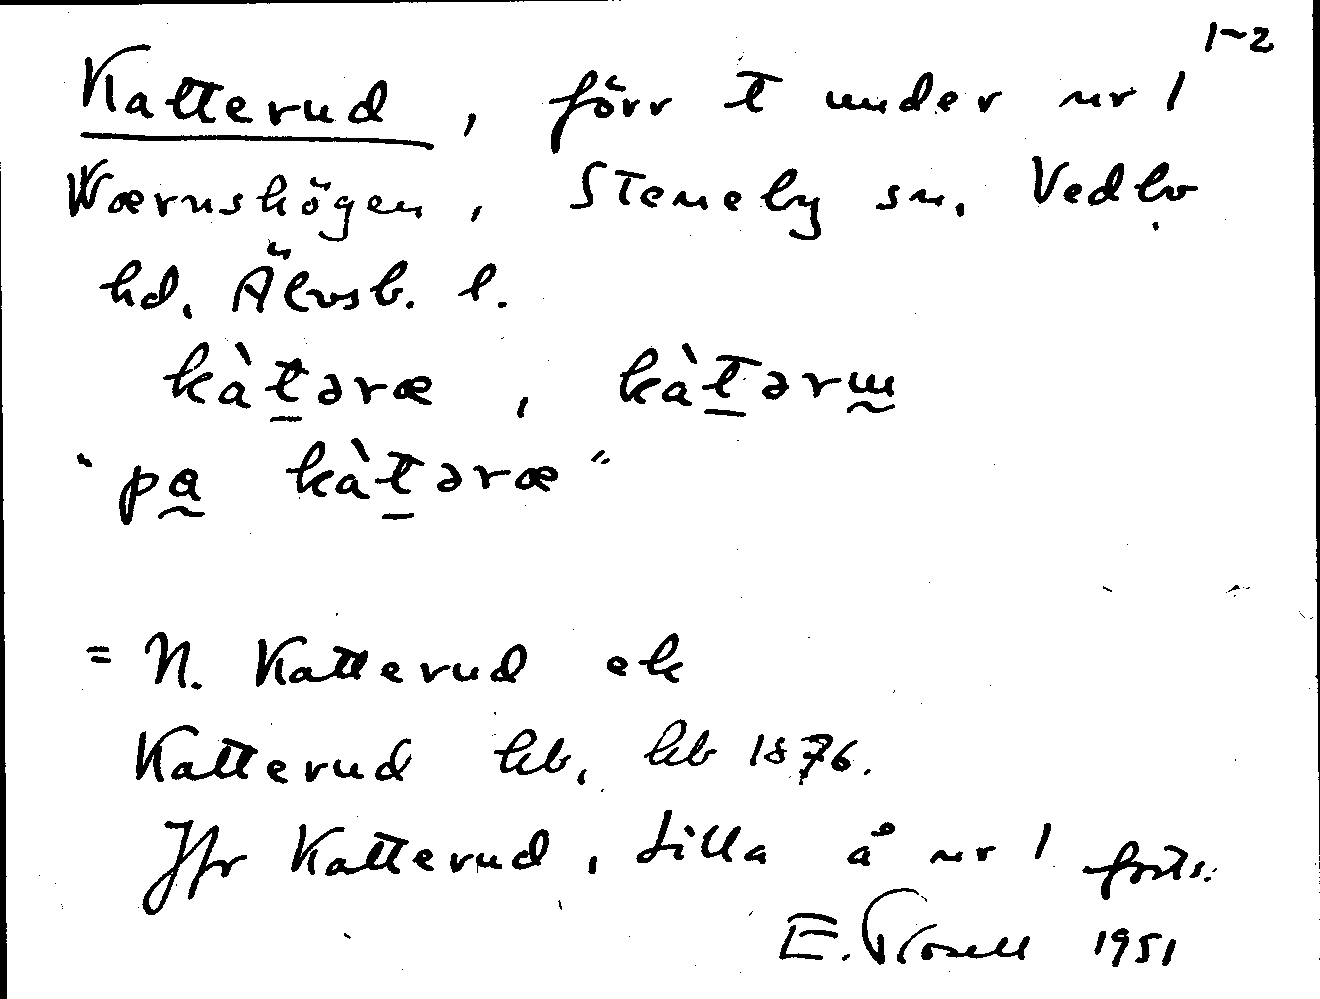 1-2
Katterud, förr t under nr 1
Wærnshögen, Steneby sn. Vedbo
hd. Älvsb. l.
kàt̠əræ, kàt̠ərɯ̰
"pa̰ kàt̠əræ"
= N. Katterud ek
Katterud hb, hb 1876.
Jfr Katterud, Lilla å nr 1 forts.
E. Rosell 1951